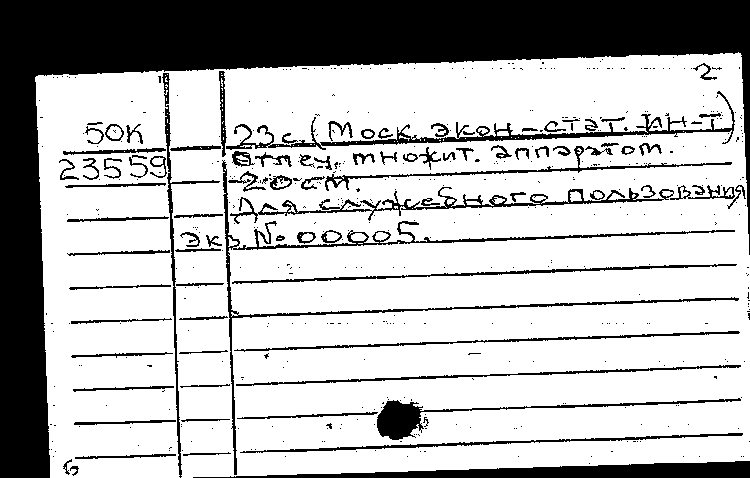 2
50К 23 с. (Моск. экон-стат. ин-т)
23559 Отпеч. множит. аппаратом.
20 см.
Для служебного пользования
экз. № 00005.
6